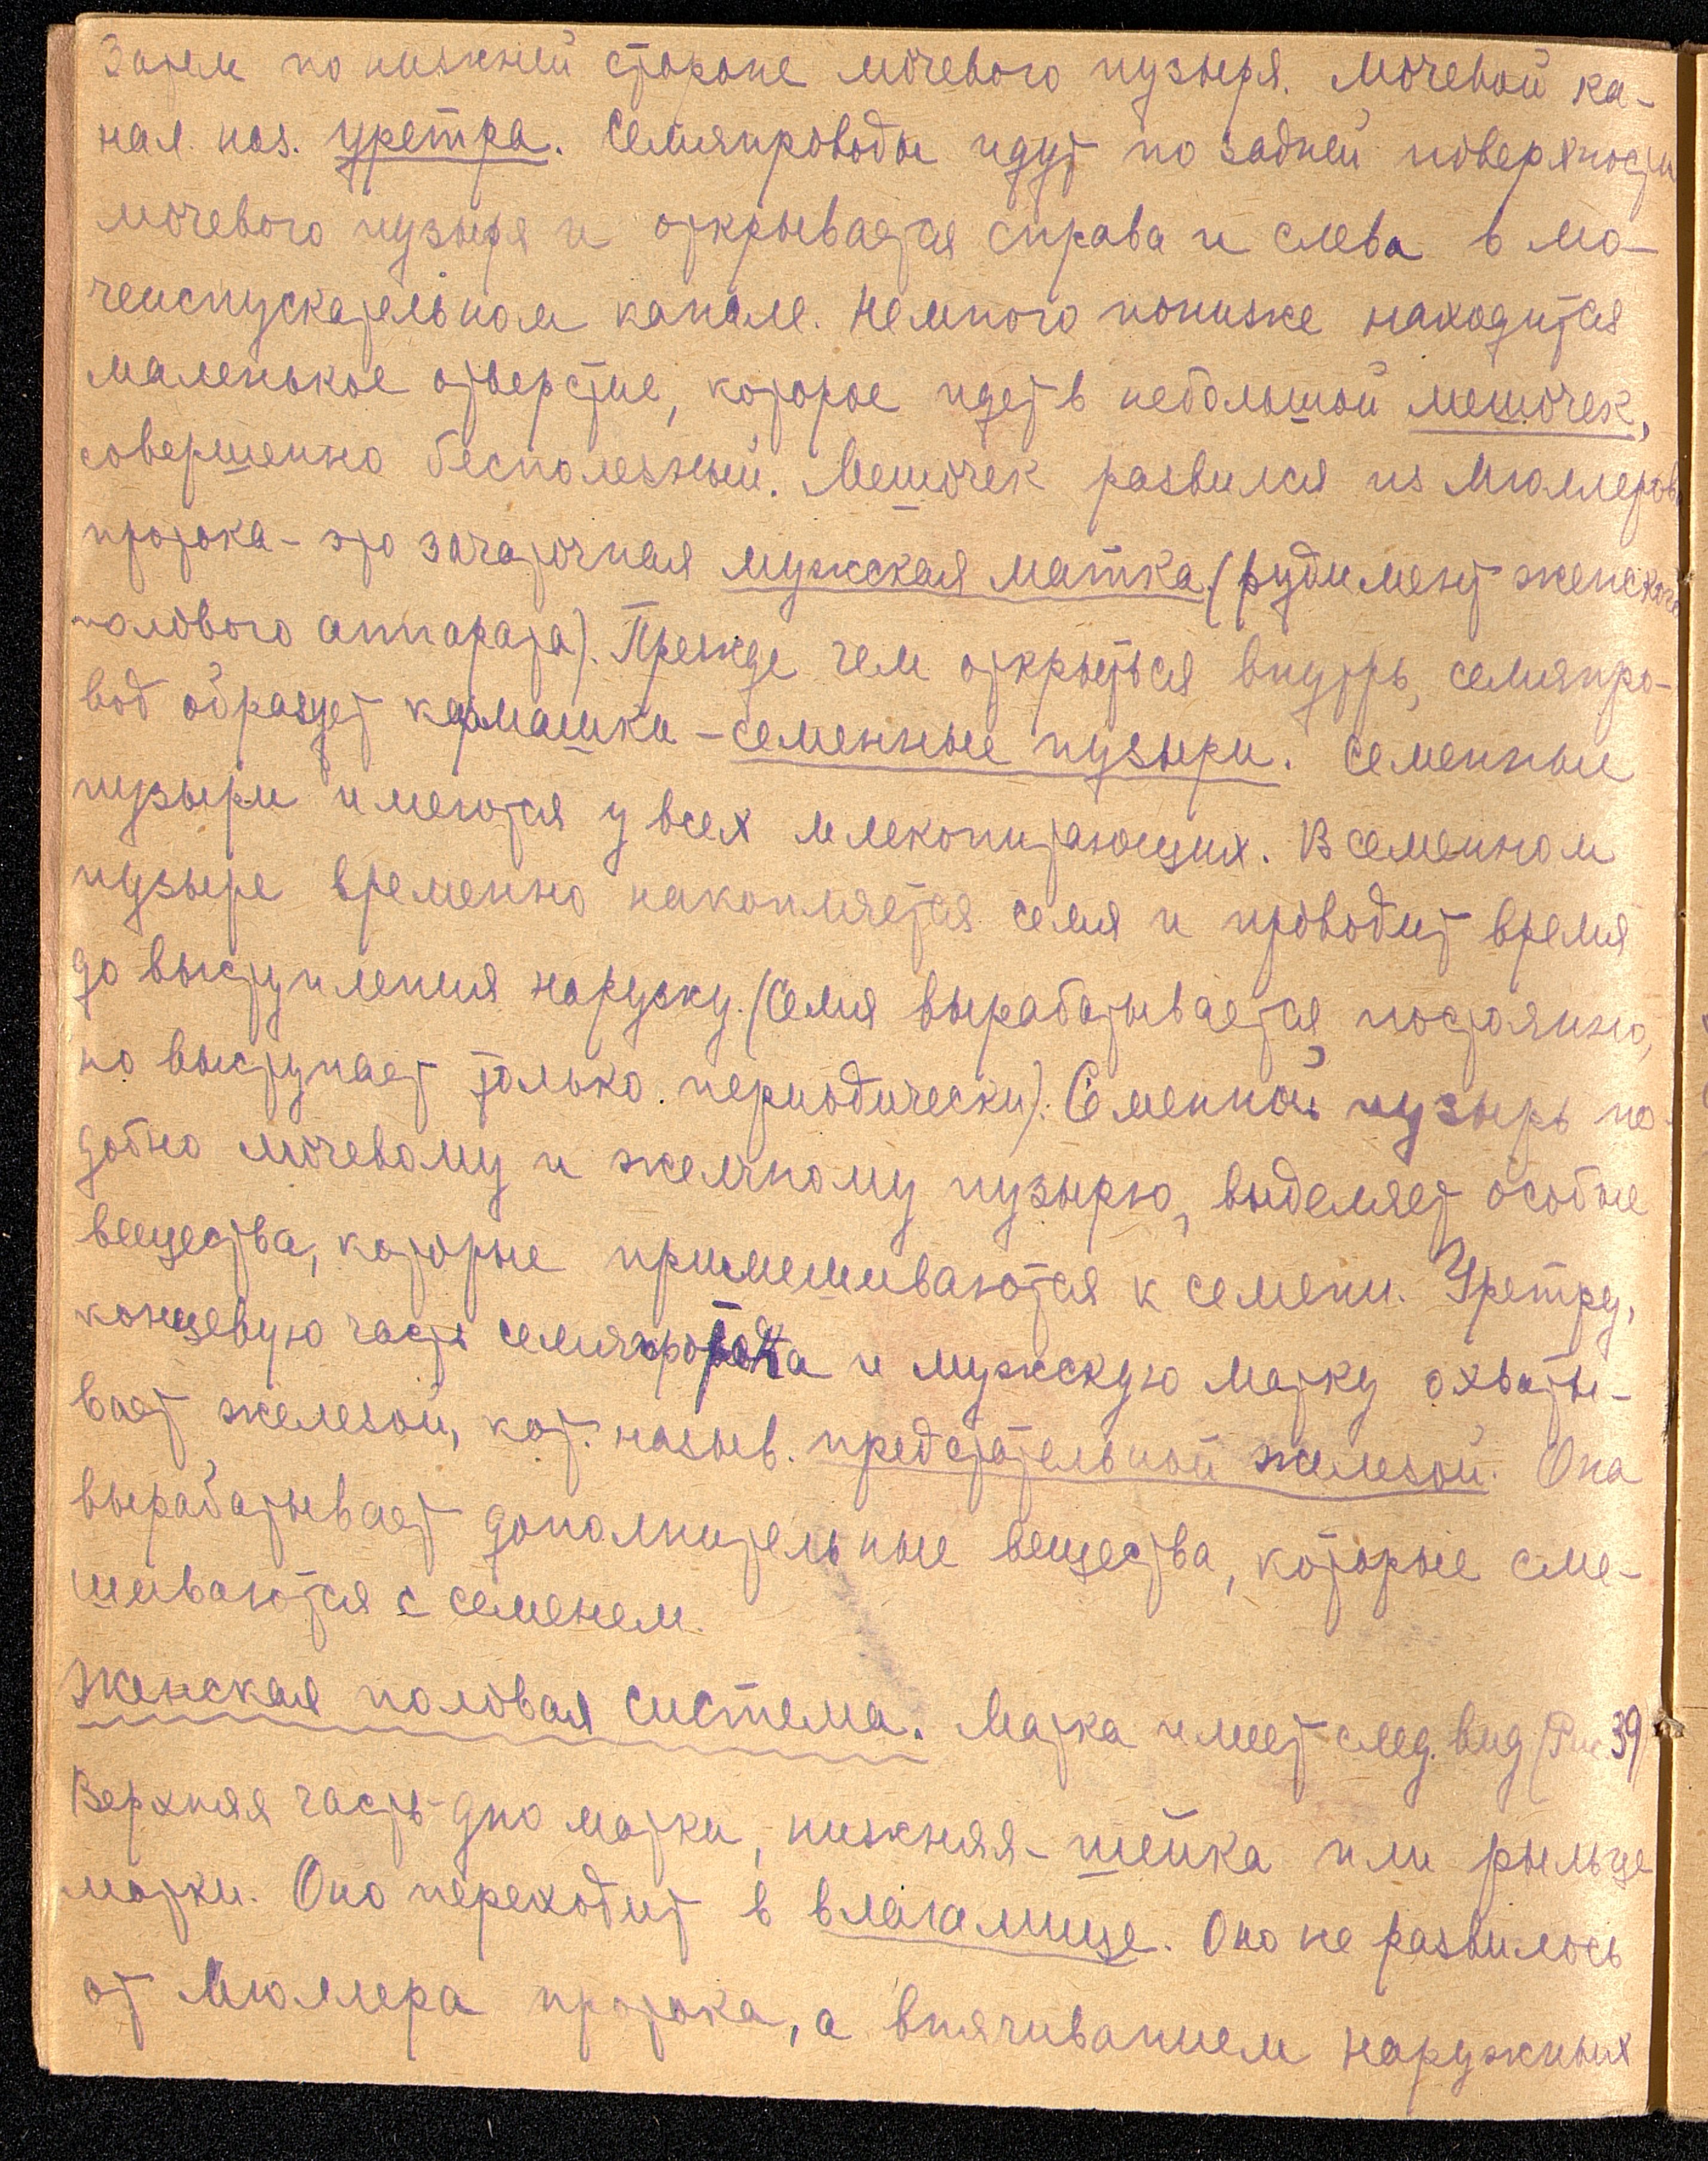 Затем по нижней стороне мочевого пузыря. Мочевой ка-
нал наз. уретра. Семяпроводы идут по задней поверхности
мочевого пузыря и открывается справа и слева в мо-
чеиспускательном канале. Немного пониже находится
маленькое отверстие, которое идет в небольшой мешочек,
совершенно бесполезный. Мешочек развился из Мюллеров
протока - это зачаточная мужская матка. (рудимент женского
полового аппарата). Прежде чем открыться внутрь, семяпро-
вод образует кармашки - семенные пузыри. Семенные
пузыри имеются у всех млекопитающих. В семенном
пузыре временно накопляется семя и проводит время
до выступления наружу. (Семя вырабатывается постоянно,
но выступает только периодически). Семенной пузырь по-
добно мочевому и желчному пузырю, выделяет особые
вещества, которые примешиваются к семени. Уретру,
концевую часть и мужскую матку охваты-
вает железой, кот. назыв. предстательной железой. Она
вырабатывает дополнительные вещества, которые сме-
шиваются с семенем.
Женская половая система. Матка имеет след. вид (Рис 39)
Верхняя часть - дно матки, нижняя - шейка или рыльце
матки. Оно переходит в влагалище. Оно не развилось
от Мюллера протока, а впячиванием наружных